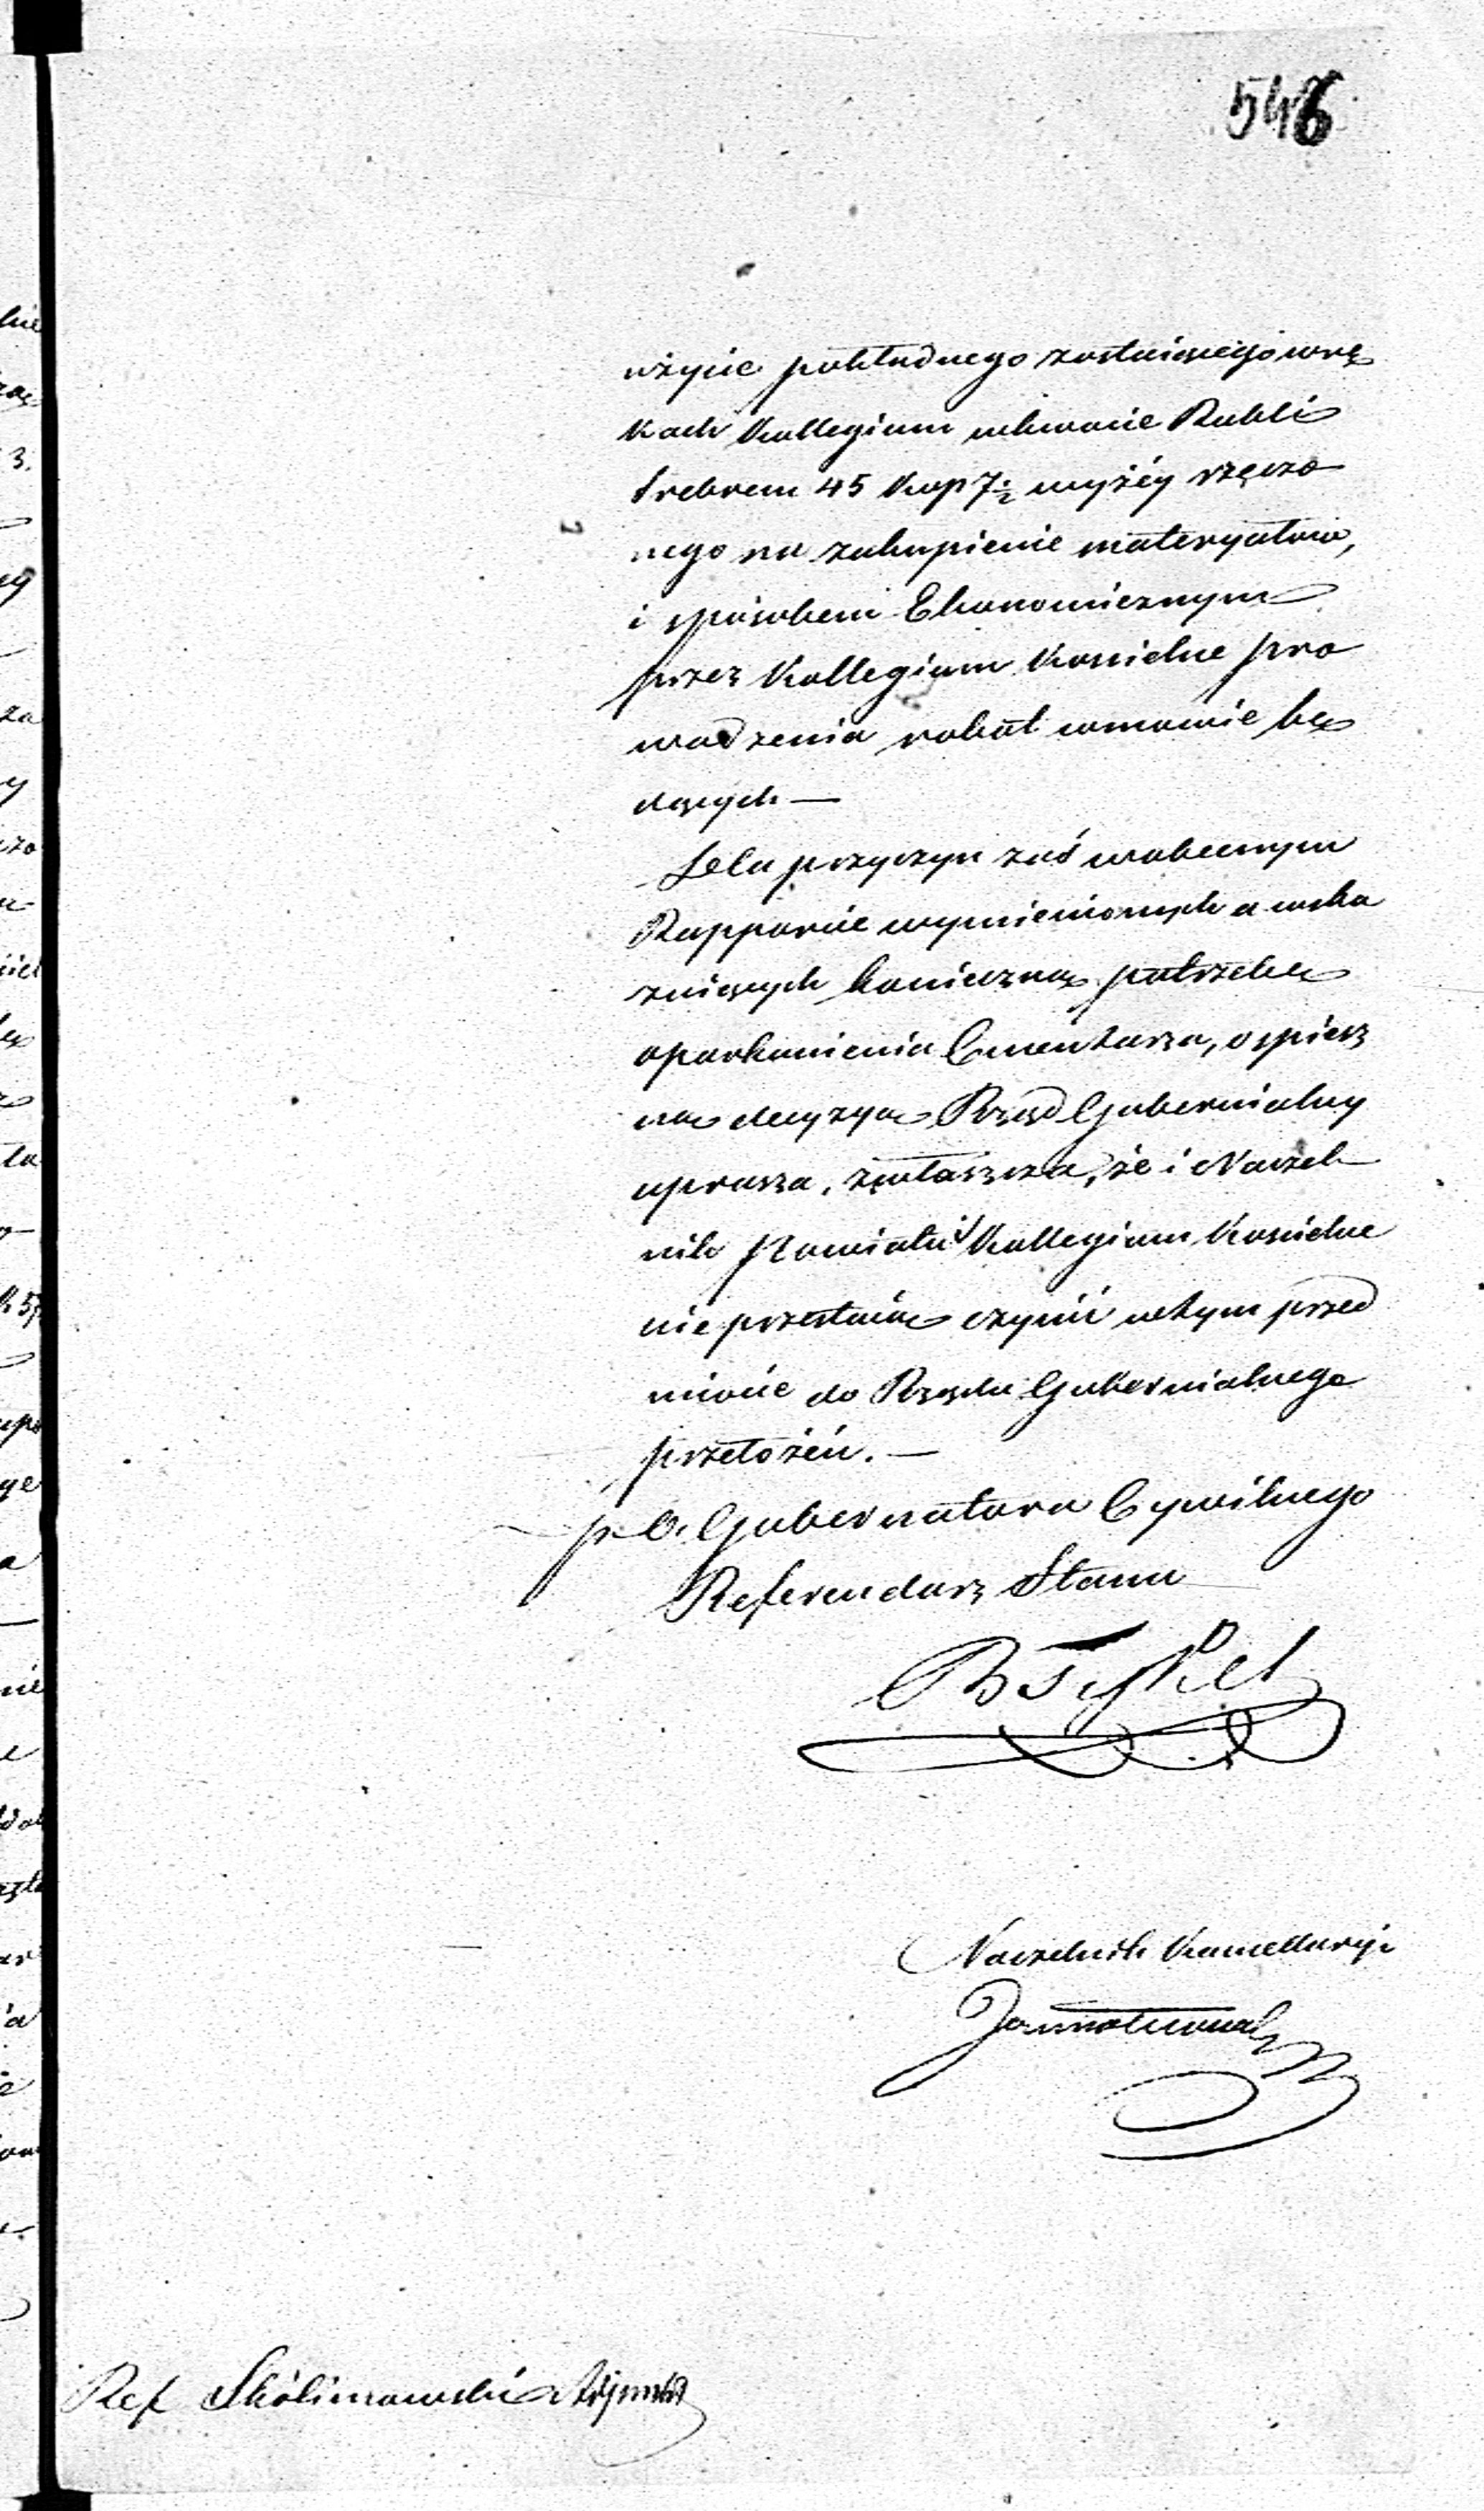 546
użycie pokładnego zostaiącego w rę
kach Kollegium w kwocie Rubli
srebrem 45 kop 7½ wyżéy rzeczo
nego na zakupienie materyałów,
i sposobem Ekonomicznym
przez Kollegium Kościelne pro
wadzenia robót w mowie bę
dących —
Z tylu przyczyn zaś w obecnym
Rapporcie wymienionych a wska
zuiących konieczną potrzebę
oparkanienia Cmentarza, o spiesz
ną decyzyą Rząd Gubernialny
uprasza, zwłaszcza, że i Naczel
nik Powiatu i Kollegium Kościelne
nie przestaią czynić w tym przed
miocie do Rządu Gubernialnego
przełożeń. —
p. O. Gubernatora Cywilnego
Referendarz Stanu
Białoskórski
Naczelnik Kancellaryi
Ref Skolimowski